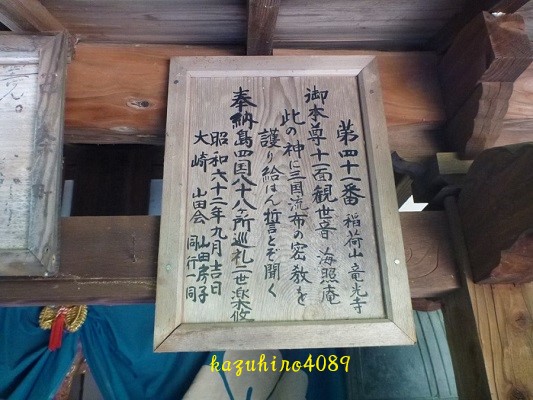 第四十一番 稲荷山 竜光寺
御本尊十一面観世音 海照庵
此の神に三国流布の密教を
護り給はん誓とぞ聞く
奉納島四国八十八ケ所巡礼二世楽攸
昭和六十二年九月吉日
大崎 山田会 山田房子
同行一同
kazuhiro4089